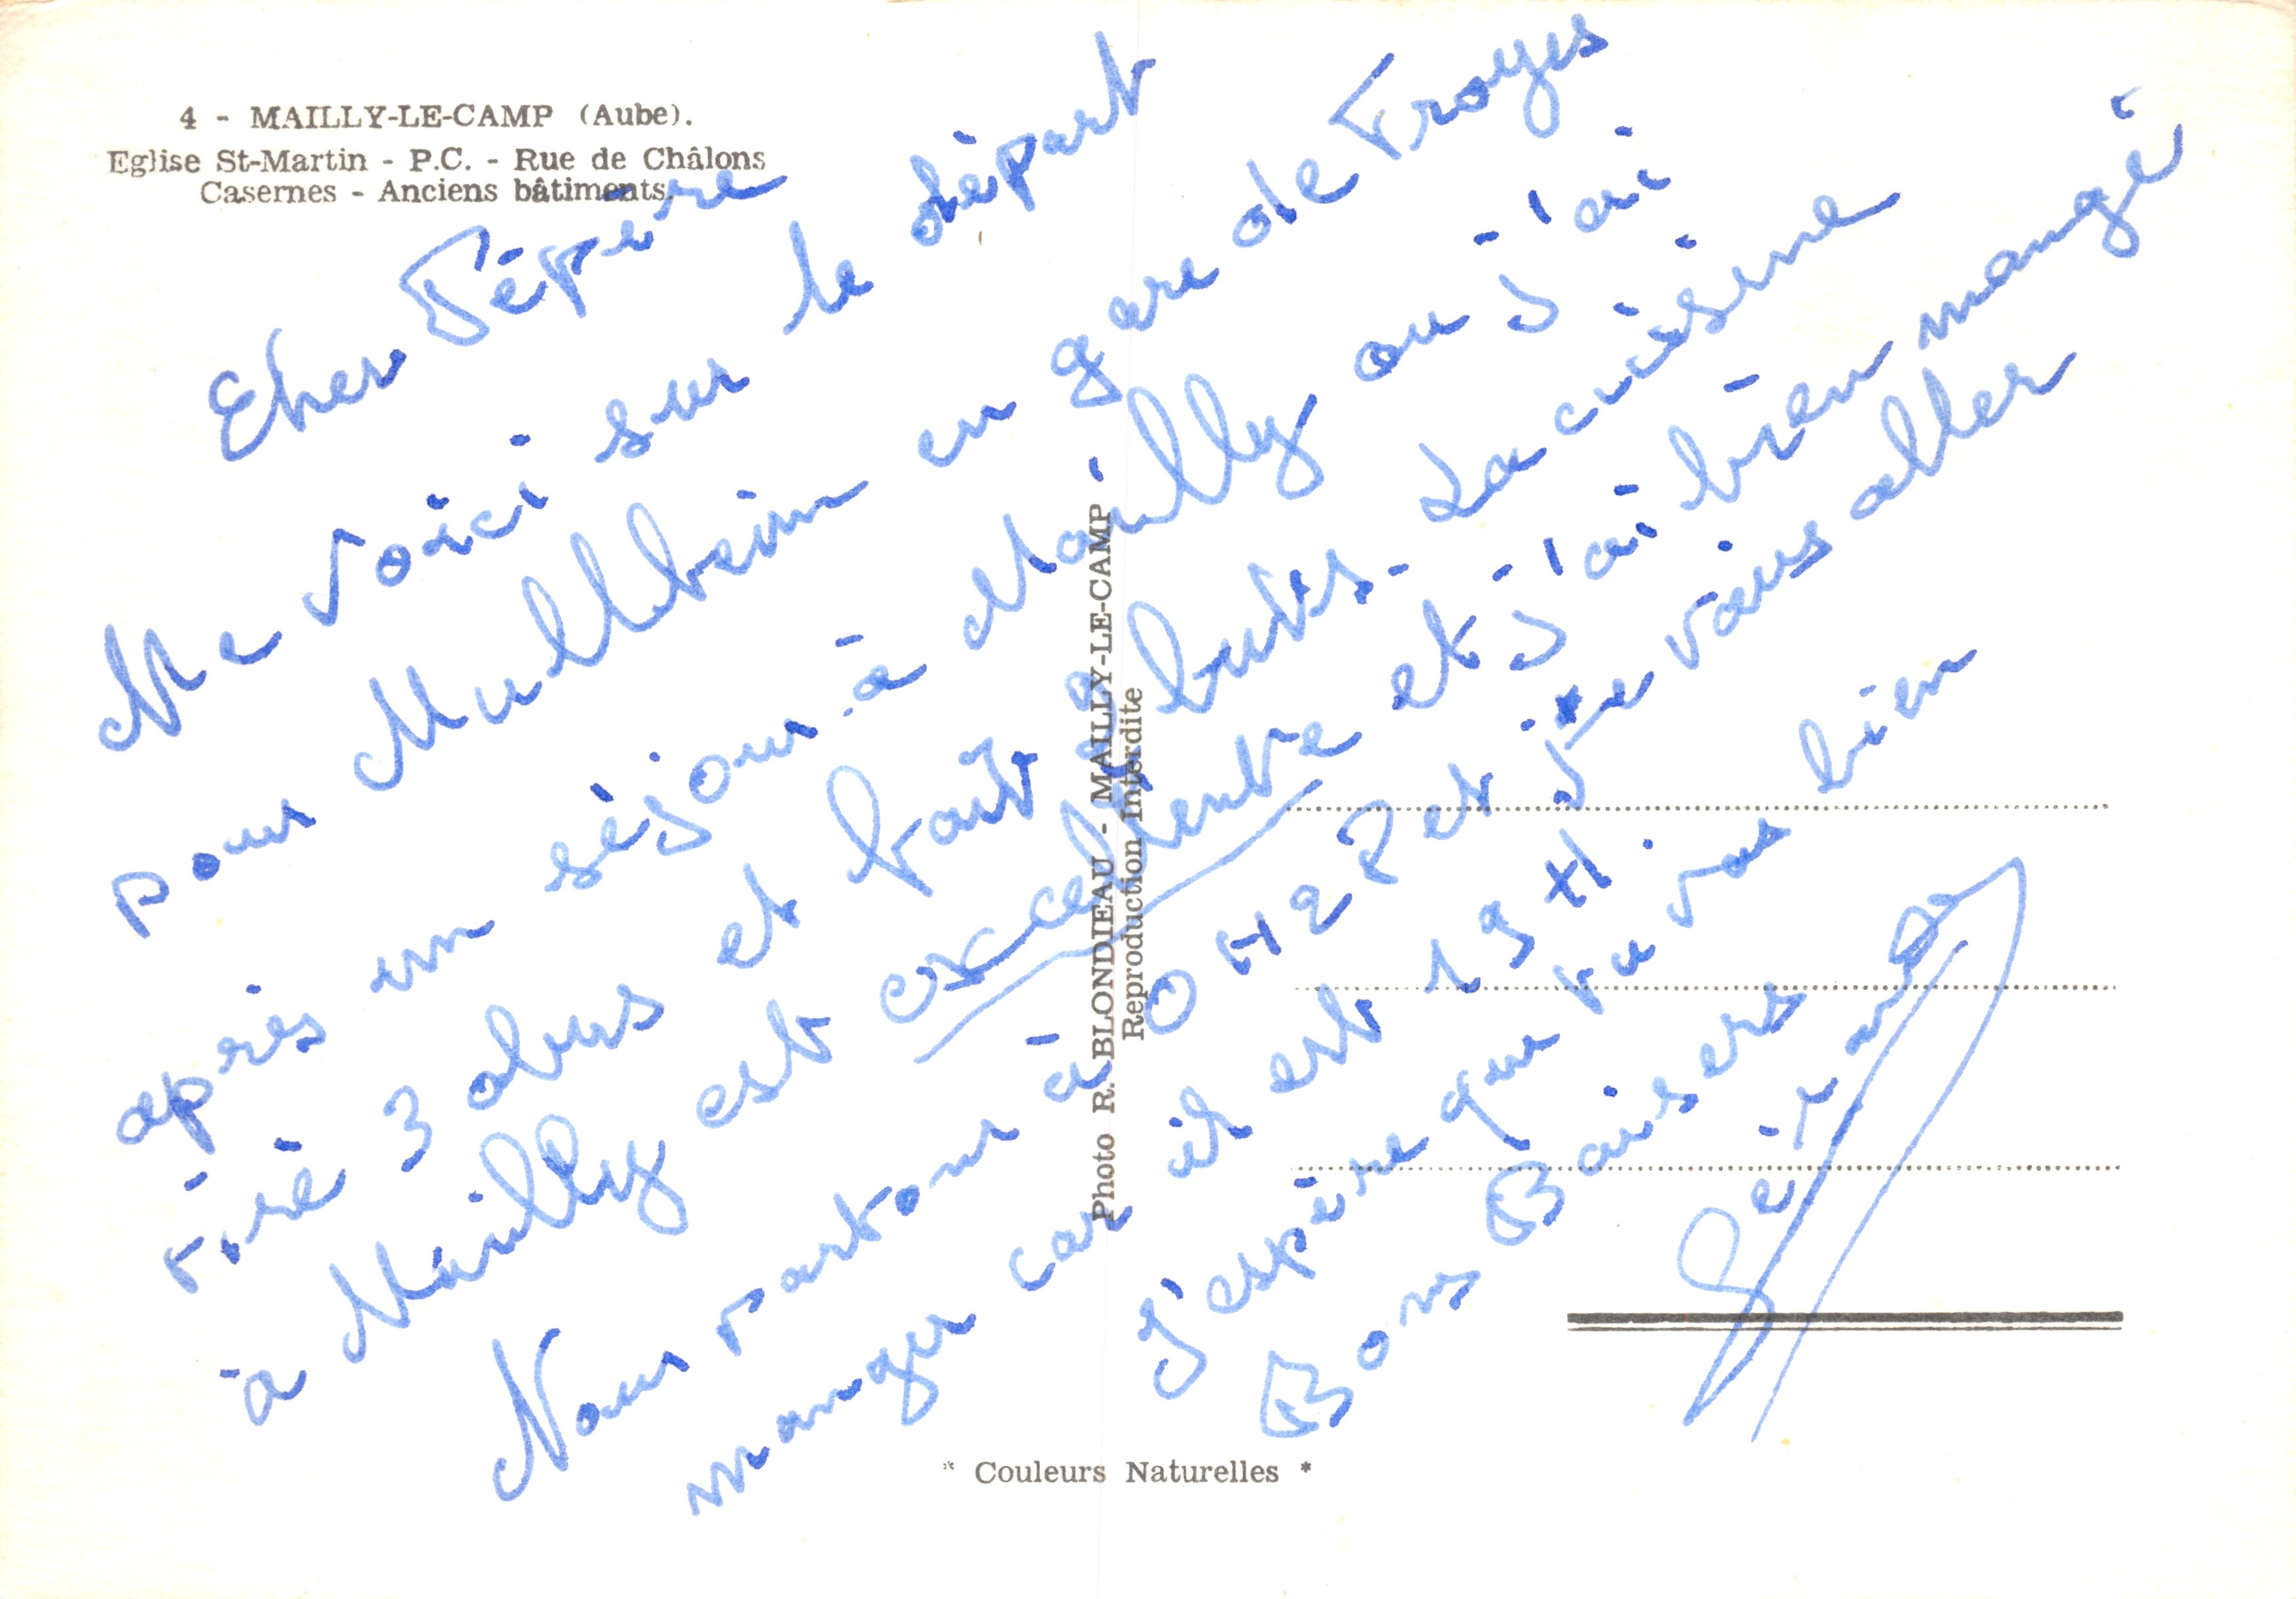 4 - MAILLY-LE-CAMP (Aube).
Eglise St-Martin - P.C. - Rue de Châlons
Casernes - Anciens bâtiments.
Cher Pépère
Me voici sur le départ
pour Mullheim en gare de Troyes
après un séjour à Mailly ou j'ai
tiré 3 obus et fait buts. La cuisine
à Mailly est excellente et j'ai bien mangé
Nous partons à 0H22 et je vais aller
manger car il est 19H.
J'espère que tu vas bien
Bons Baisers
Gérard
Photo R. BLONDIEAU - MAILLY-LE-CAMP
Reproduction Interdite
* Couleurs Naturelles *